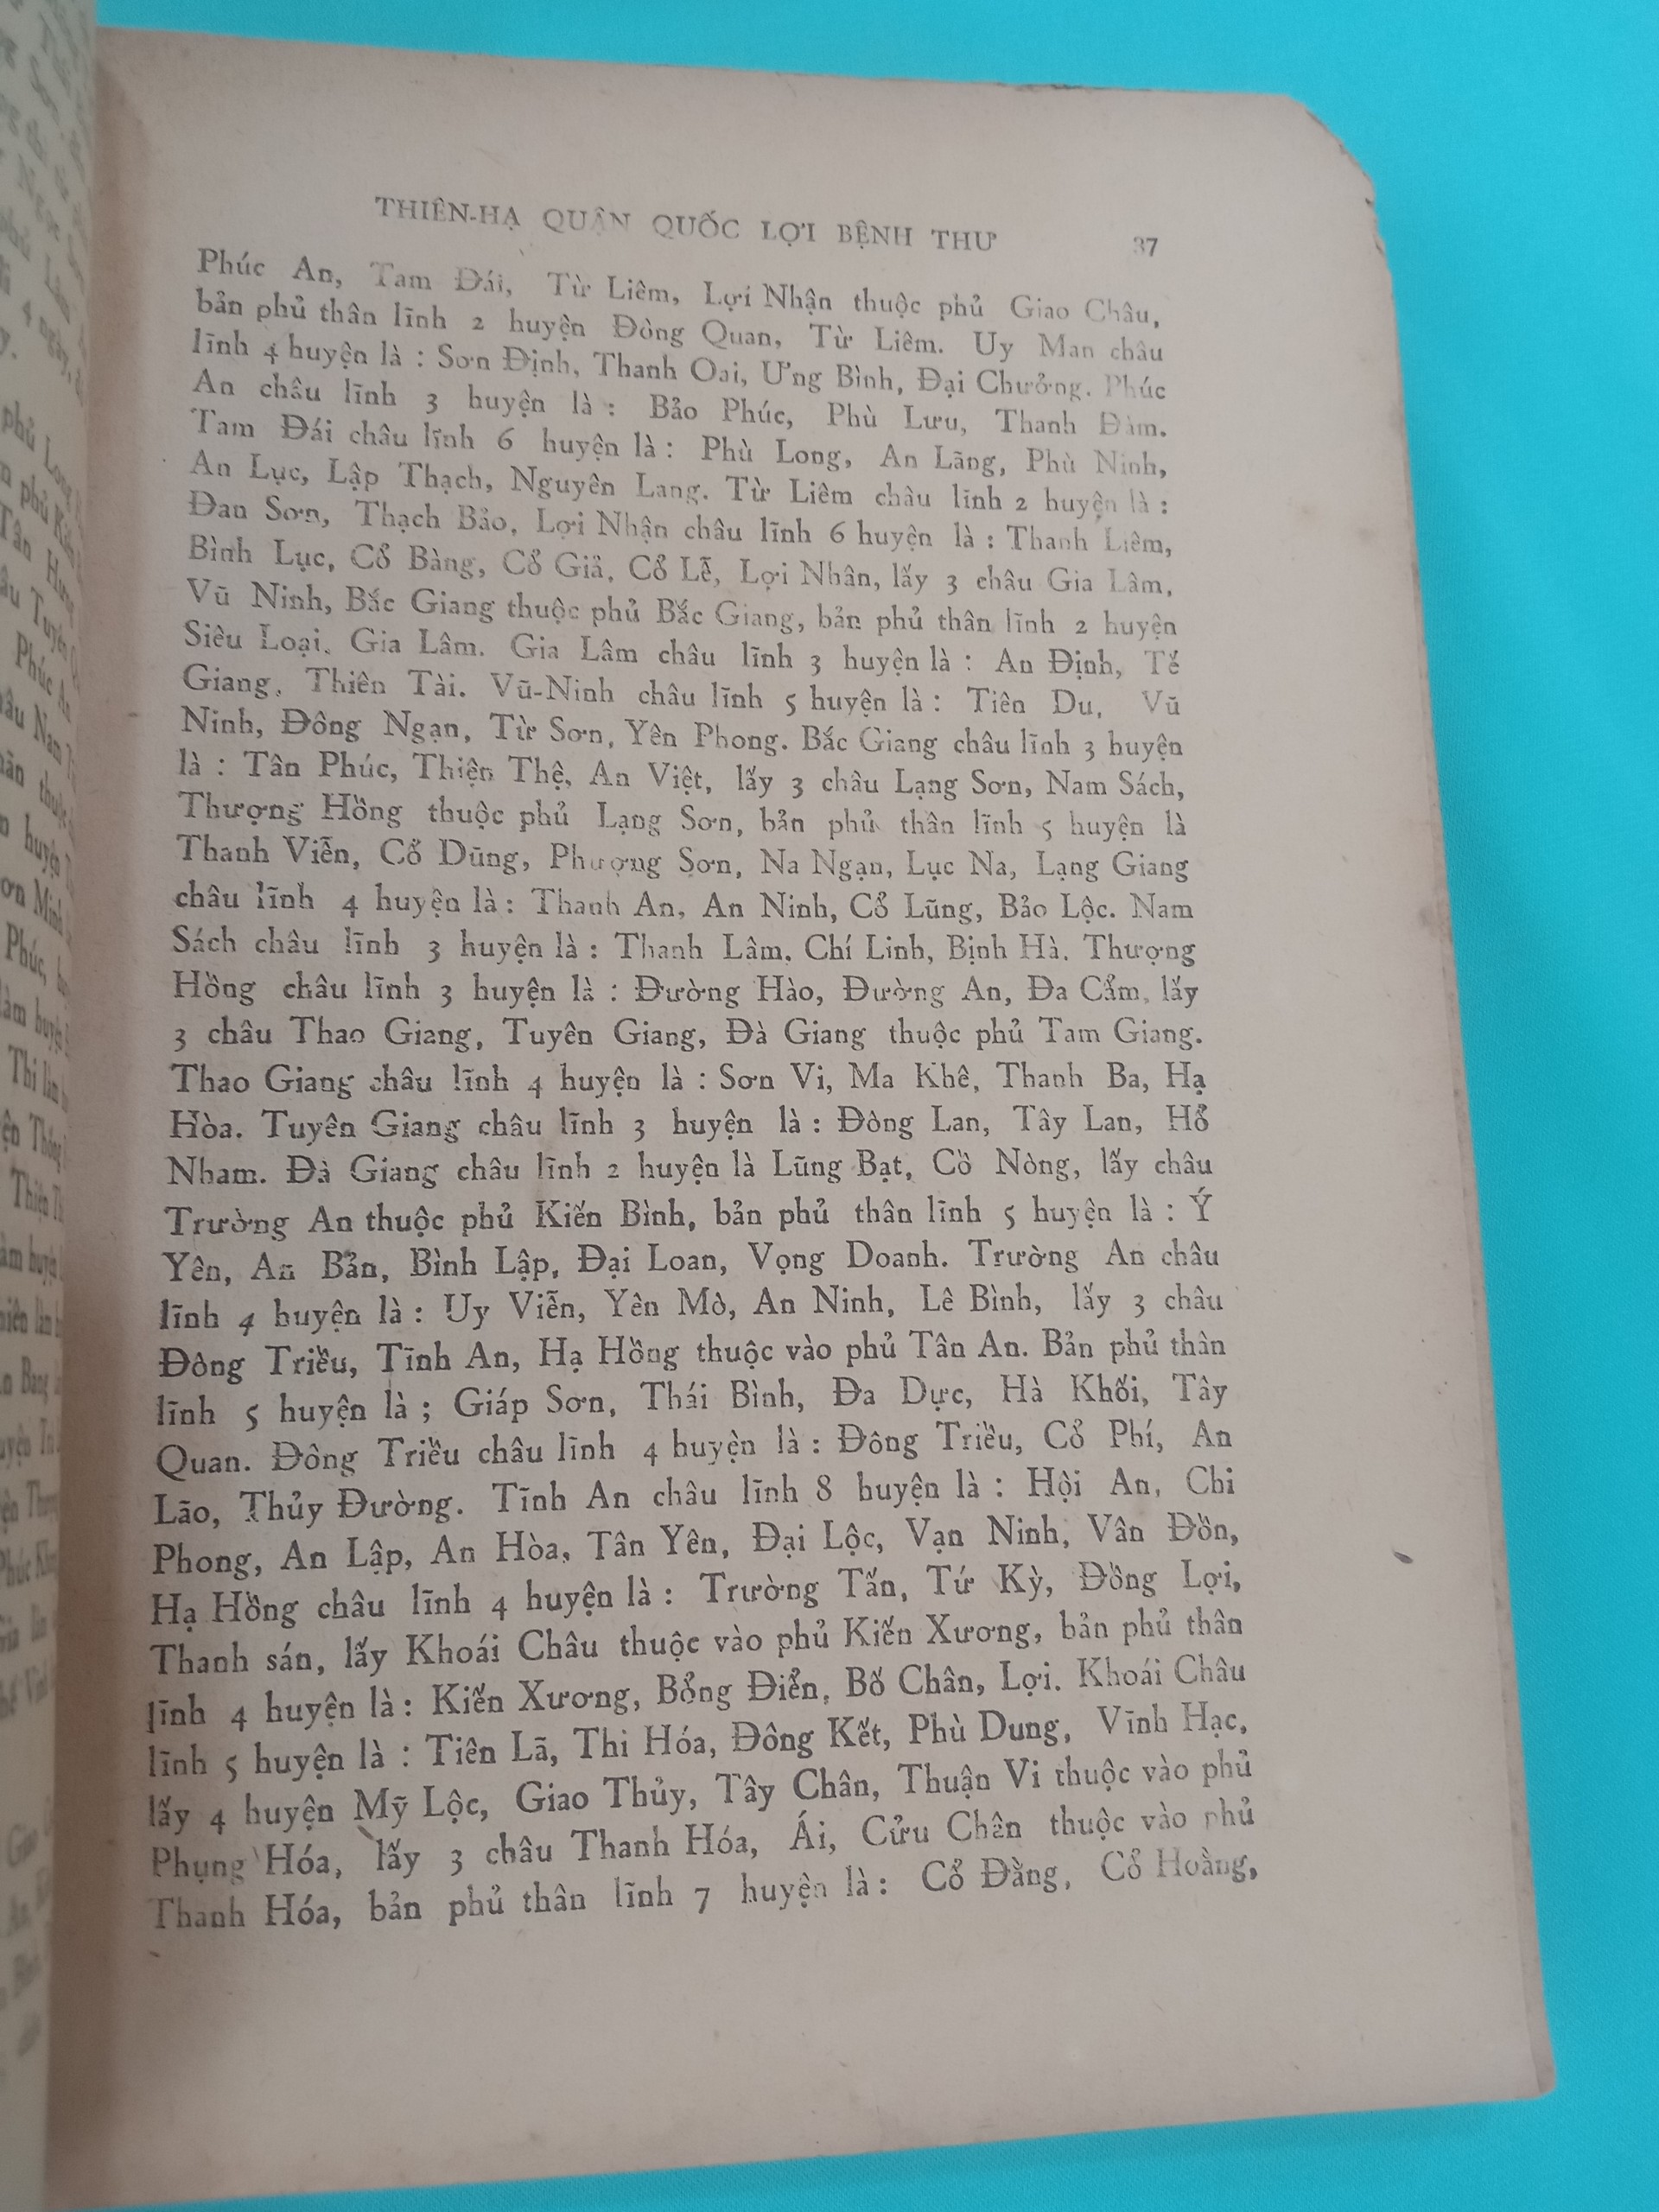 THIÊN-HẠ QUẬN QUỐC LỢI BỆNH THƯ 37
Phúc An, Tam Đái, Từ Liêm, Lợi Nhận thuộc phủ Giao Châu,
bản phủ thân lĩnh 2 huyện Đông Quan, Từ Liêm. Uy Man châu
lĩnh 4 huyện là : Sơn Định, Thanh Oai, Ứng Bình, Đại Chưởng. Phúc
An châu lĩnh 3 huyện là : Bảo Phúc, Phù Lưu, Thanh Đàm.
Tam Đái châu lĩnh 6 huyện là : Phù Long, An Lãng, Phù Ninh,
An Lục, Lập Thạch, Nguyên Lang. Từ Liêm châu lĩnh 2 huyện là :
Đan Sơn, Thạch Bảo, Lợi Nhận châu lĩnh 6 huyện là : Thanh Liêm,
Bình Lục, Cổ Bàng, Cổ Giả, Cổ Lễ, Lợi Nhân, lấy 3 châu Gia Lâm,
Vũ Ninh, Bắc Giang thuộc phủ Bắc Giang, bản phủ thân lĩnh 2 huyện
Siêu Loại, Gia Lâm. Gia Lâm châu lĩnh 3 huyện là : An Định, Tế
Giang, Thiên Tài. Vũ-Ninh châu lĩnh 5 huyện là : Tiên Du, Vũ
Ninh, Đông Ngạn, Từ Sơn, Yên Phong. Bắc Giang châu lĩnh 3 huyện
là : Tân Phúc, Thiện Thệ, An Việt, lấy 3 châu Lạng Sơn, Nam Sách,
Thượng Hồng thuộc phủ Lạng Sơn, bản phủ thân lĩnh 5 huyện là
Thanh Viễn, Cổ Dũng, Phượng Sơn, Na Ngạn, Lục Na, Lạng Giang
châu lĩnh 4 huyện là : Thanh An, An Ninh, Cổ Lũng, Bảo Lộc. Nam
Sách châu lĩnh 3 huyện là : Thanh Lâm, Chí Linh, Bịnh Hà. Thượng
Hồng châu lĩnh 3 huyện là : Đường Hào, Đường An, Đa Cẩm, lấy
3 châu Thao Giang, Tuyên Giang, Đà Giang thuộc phủ Tam Giang.
Thao Giang châu lĩnh 4 huyện là : Sơn Vi, Ma Khê, Thanh Ba, Hạ
Hòa. Tuyên Giang châu lĩnh 3 huyện là : Đông Lan, Tây Lan, Hổ
Nham. Đà Giang châu lĩnh 2 huyện là Lũng Bạt, Cồ Nòng, lấy châu
Trường An thuộc phủ Kiến Bình, bản phủ thân lĩnh 5 huyện là : Ý
Yên, An Bản, Bình Lập, Đại Loan, Vọng Doanh. Trường An châu
lĩnh 4 huyện là : Uy Viễn, Yên Mô, An Ninh, Lê Bình, lấy 3 châu
Đông Triều, Tĩnh An, Hạ Hồng thuộc vào phủ Tân An. Bản phủ thân
lĩnh 5 huyện là ; Giáp Sơn, Thái Bình, Đa Dực, Hà Khối, Tây
Quan. Đông Triều châu lĩnh 4 huyện là : Đông Triều, Cổ Phí, An
Lão, Thủy Đường. Tĩnh An châu lĩnh 8 huyện là : Hội An, Chi
Phong, An Lập, An Hòa, Tân Yên, Đại Lộc, Vạn Ninh, Vân Đồn,
Hạ Hồng châu lĩnh 4 huyện là : Trường Tấn, Tứ Kỳ, Đồng Lợi,
Thanh sán, lấy Khoái Châu thuộc vào phủ Kiến Xương, bản phủ thân
lĩnh 4 huyện là : Kiến Xương, Bổng Điển, Bố Chân, Lợi. Khoái Châu
lĩnh 5 huyện là : Tiên Lã, Thi Hóa, Đông Kết, Phù Dung, Vĩnh Hạc,
lấy 4 huyện Mỹ Lộc, Giao Thủy, Tây Chân, Thuận Vi thuộc vào phủ
Phụng Hóa, lấy 3 châu Thanh Hóa, Ái, Cửu Chân thuộc vào phủ
Thanh Hóa, bản phủ thân lĩnh 7 huyện là : Cổ Đằng, Cổ Hoằng,